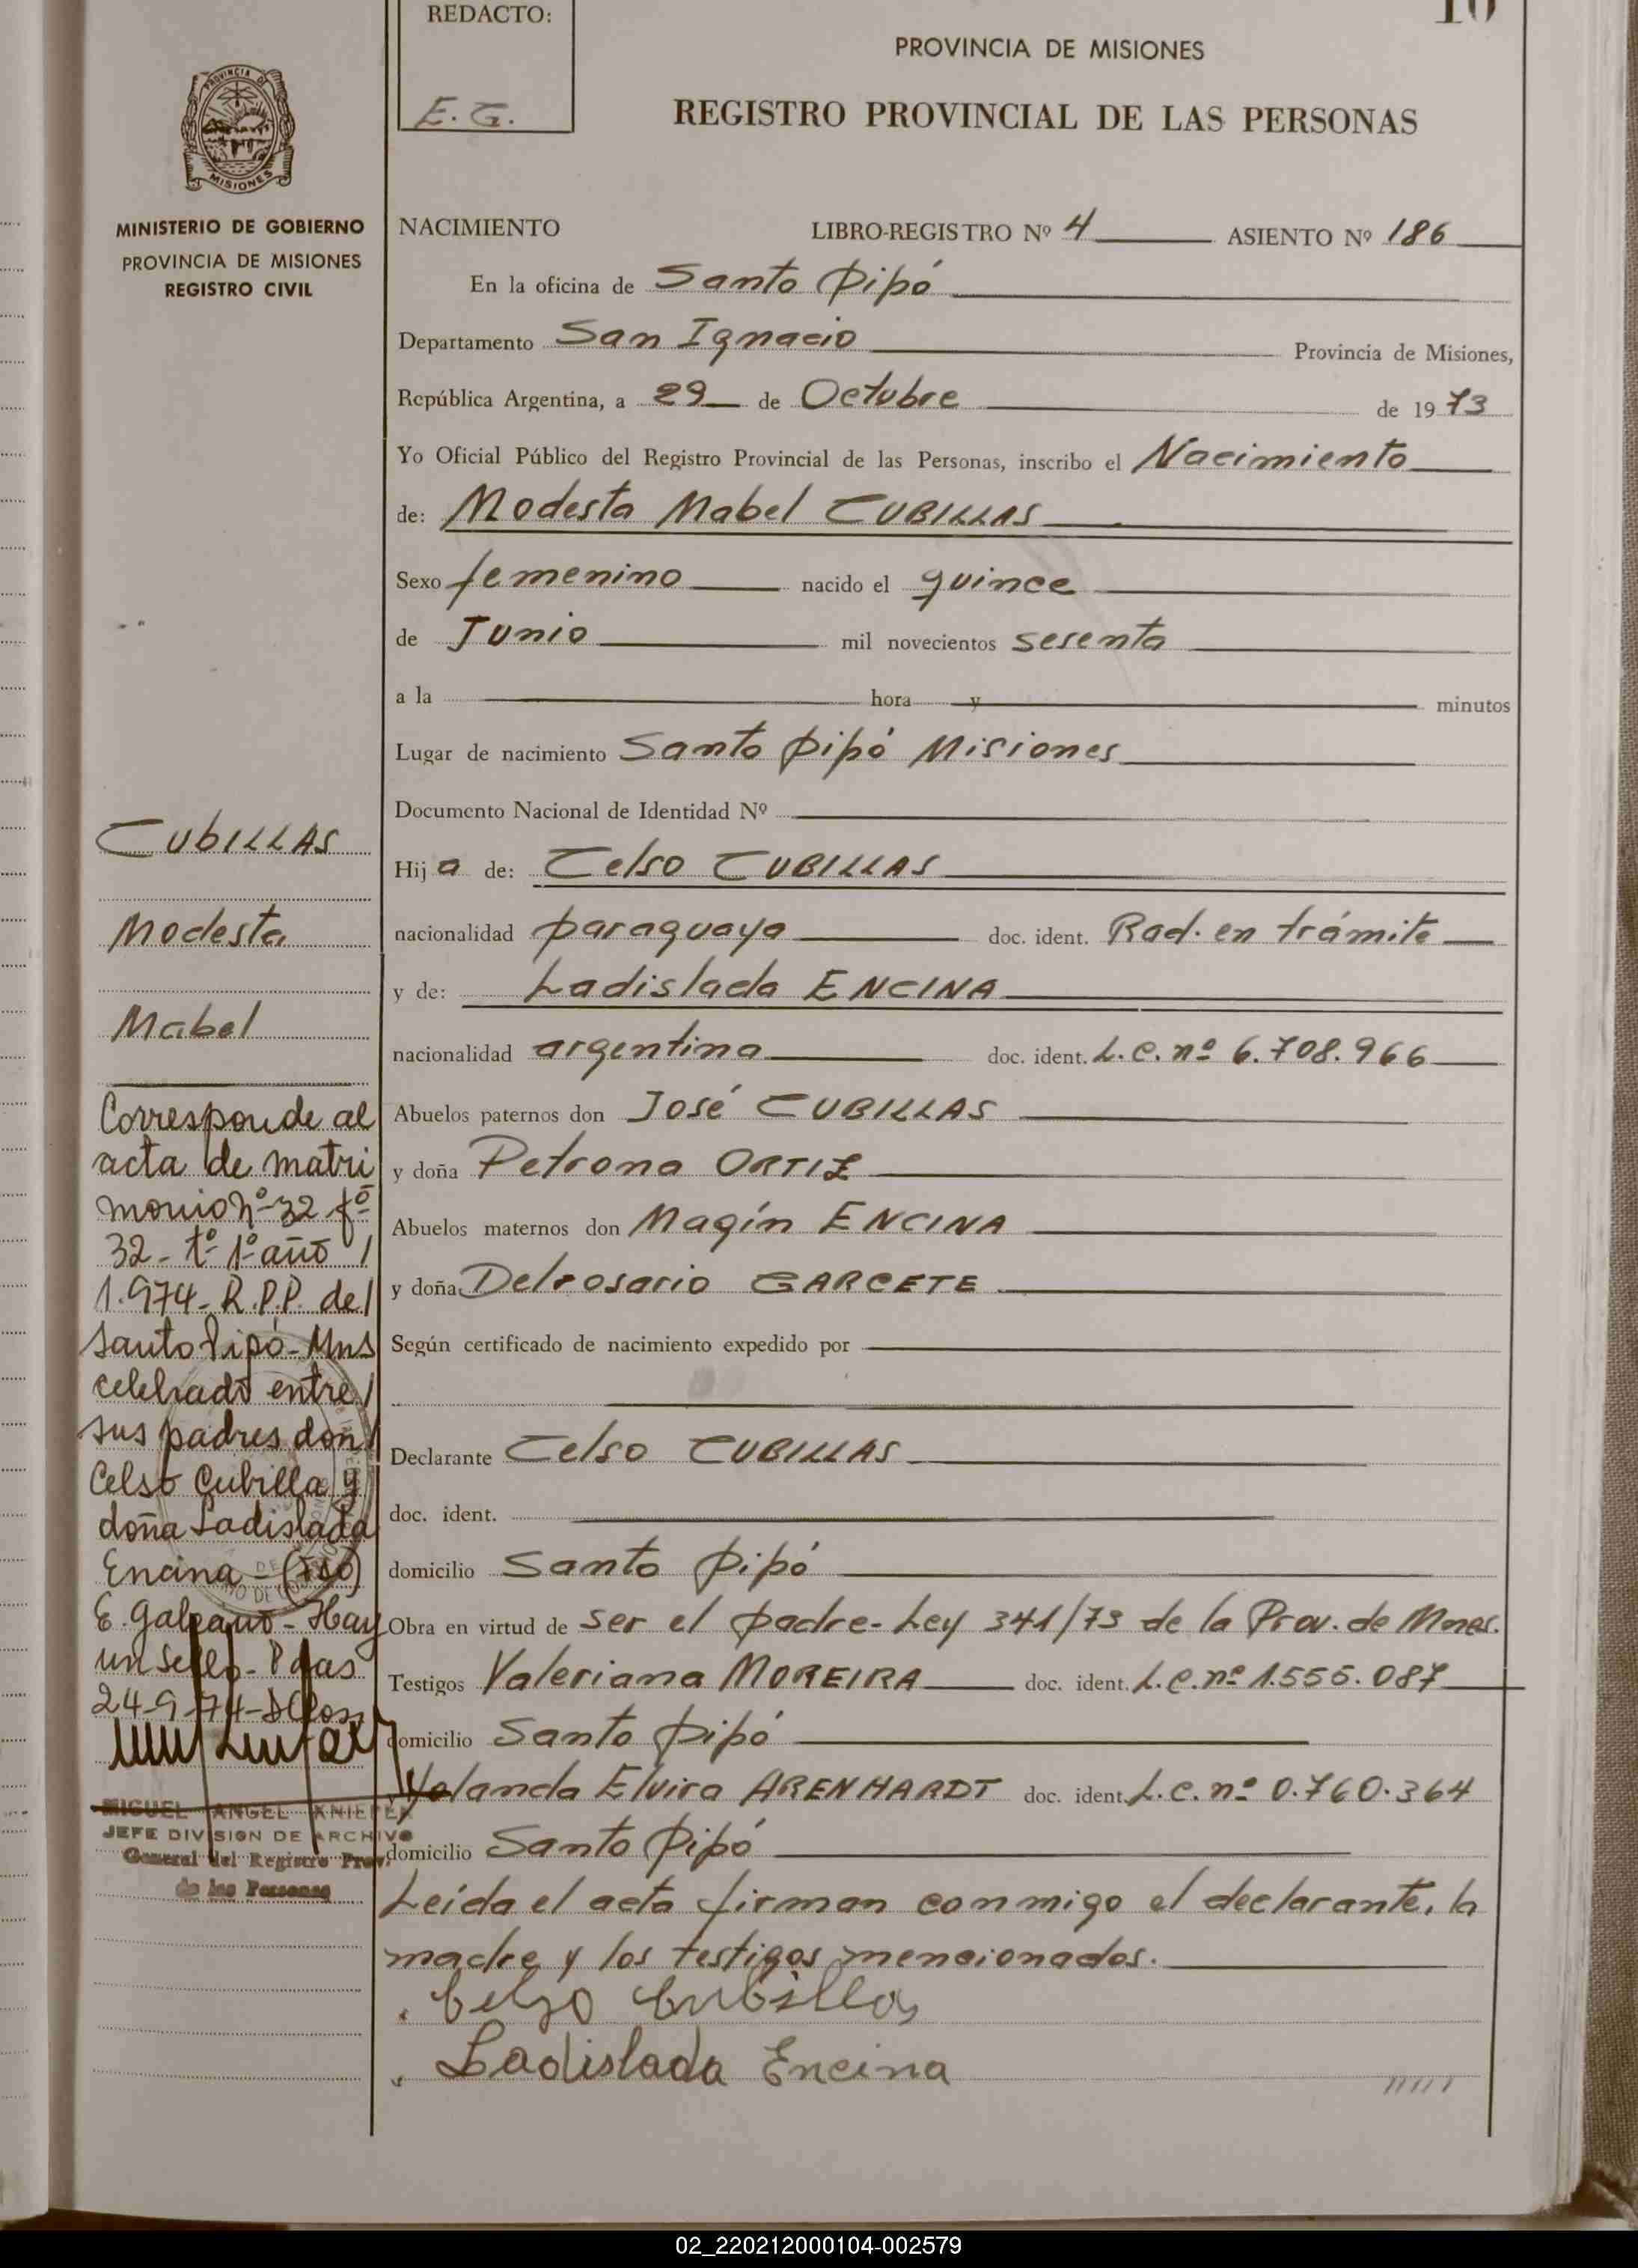 REDACTO:
E. G.
10
PROVINCIA DE MISIONES
REGISTRO PROVINCIAL DE LAS PERSONAS
PROVINCIA DE
MISIONES
MINISTERIO DE GOBIERNO
PROVINCIA DE MISIONES
REGISTRO CIVIL
NACIMIENTO LIBRO-REGISTRO Nº 4 ASIENTO Nº 186
En la oficina de Santo Pipó
Departamento San Ignacio Provincia de Misiones,
República Argentina, a 29 de Octubre de 1973
Yo Oficial Público del Registro Provincial de las Personas, inscribo el Nacimiento
de: Modesta Mabel CUBILLAS
Sexo femenino nacido el quince
de Junio mil novecientos sesenta
a la hora y minutos
Lugar de nacimiento Santo Pipó Misiones
Documento Nacional de Identidad Nº
Hija de: Celso CUBILLAS
nacionalidad paraguaya doc. ident. Rad. en trámite
y de: Ladislada ENCINA
nacionalidad argentina doc. ident. L.C. nº 6.708.966
Abuelos paternos don José CUBILLAS
y doña Petrona ORTIZ
Abuelos maternos don Magín ENCINA
y doña Delrosario GARCETE
Según certificado de nacimiento expedido por
Declarante Celso CUBILLAS
doc. ident.
domicilio Santo Pipó
Obra en virtud de ser el padre- Ley 341/73 de la Prov. de Mnes.
Testigos Valeriana MOREIRA doc. ident. L.C. nº 1.555.087
domicilio Santo Pipó
y Yolanda Elvira ARENHARDT doc. ident. L.C. nº 0.760.364
domicilio Santo Pipó
Leída el acta firman conmigo el declarante, la
madre y los testigos mencionados.
Celso Cubillas
Ladislada Encina
CUBILLAS
Modesta
Mabel
Corresponde al
acta de matri
monio nº 32 fº
32 - tº 1º año /
1.974 - R.P.P. de /
Santo Pipó - Mns
celebrado entre /
sus padres don /
Celso Cubilla y
doña Ladislada
Encina - (Fdo)
E. Galeano - Hay
un Sello - Pdas
24-9-74
MIGUEL ANGEL KNIEPER
JEFE DIVISION DE ARCHIVO
General del Registro Prov.
de las Personas
02_220212000104-002579